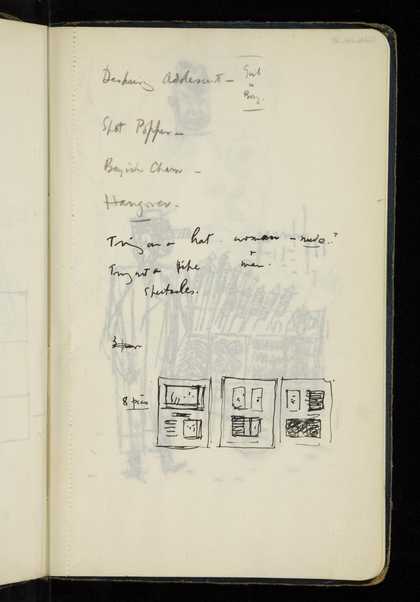 Adolescent - Girl
or
Boy.
Spot Popper -
Boyish Charm -
Hangover -
Trying on a hat. woman - nude.?
Trying out a pipe + man.
Spectacles.
8 pics